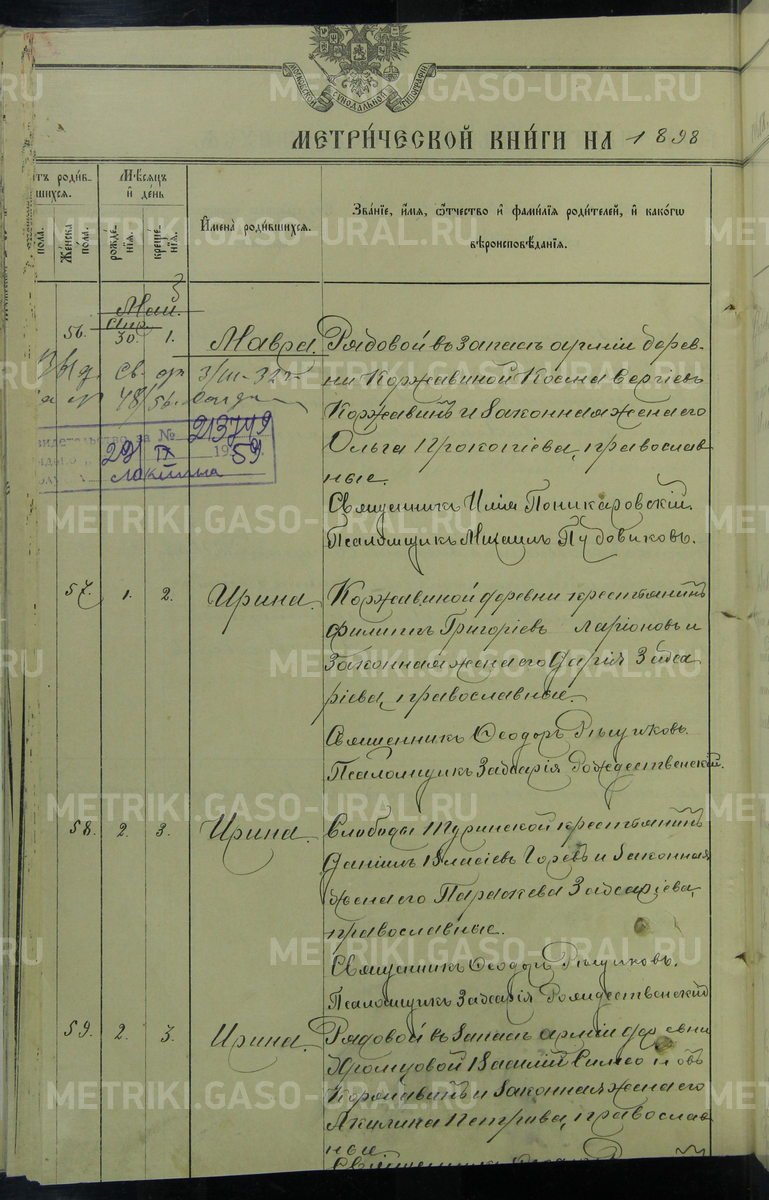 МОСКОВСКОЙ СѴНОДАЛЬНОЙ ТИПОГРАФІИ
МЕТРИ́ЧЕСКОЙ КНИ́ГИ НА 1898
тъ роди́в-
шихся.
Мѣсяцъ
и де́нь
Имена̀ роди́вшихся.
Зва́ніе, и́мя, ѻ҆́тчество и фами́лія роди́телей, и како́гѡ
вѣроисповѣ́данія.
пола.
Же́нска
по́ла.
рожде́-
нія.
креще́-
нія.
Май.
Апр.
56. 30. 1. Мавра. Рядовой въ запасѣ арміи дерев-
ни Коржавиной Косма Сергіевъ
Коржавинъ и законная жена его
Ольга Прокопіева, православ
ные.
Священникъ Илія Поникаровскій.
Псаломщикъ Михаилъ Пудовиковъ.
св.
48/56.
№ 213749
29/IX 1959
57. 1. 2. Ирина. Коржавиной деревни крестьянинъ
Филиппъ Григоріевъ Ларіоновъ и
законная жена его Дарія Захса
ріева, православные.
Священникъ Ѳеодоръ
Псаломщикъ Захарія Рождественскій.
58. 2. 3. Ирина. Слободы Туринской крестьянинъ
Даніилъ Власіевъ Горевъ и законная
жена его Параскева Захаріева,
православные.
Священникъ Ѳеодоръ
Псаломщикъ Захарія Рождественскій
59. 2. 3. Ирина. Рядовой въ запасѣ арміи деревни
Василій Симеоновъ
Коржавинъ и законная жена его
Акилина Петрова, православ
ные.
Священникъ
METRIKI.GASO-URAL.RU